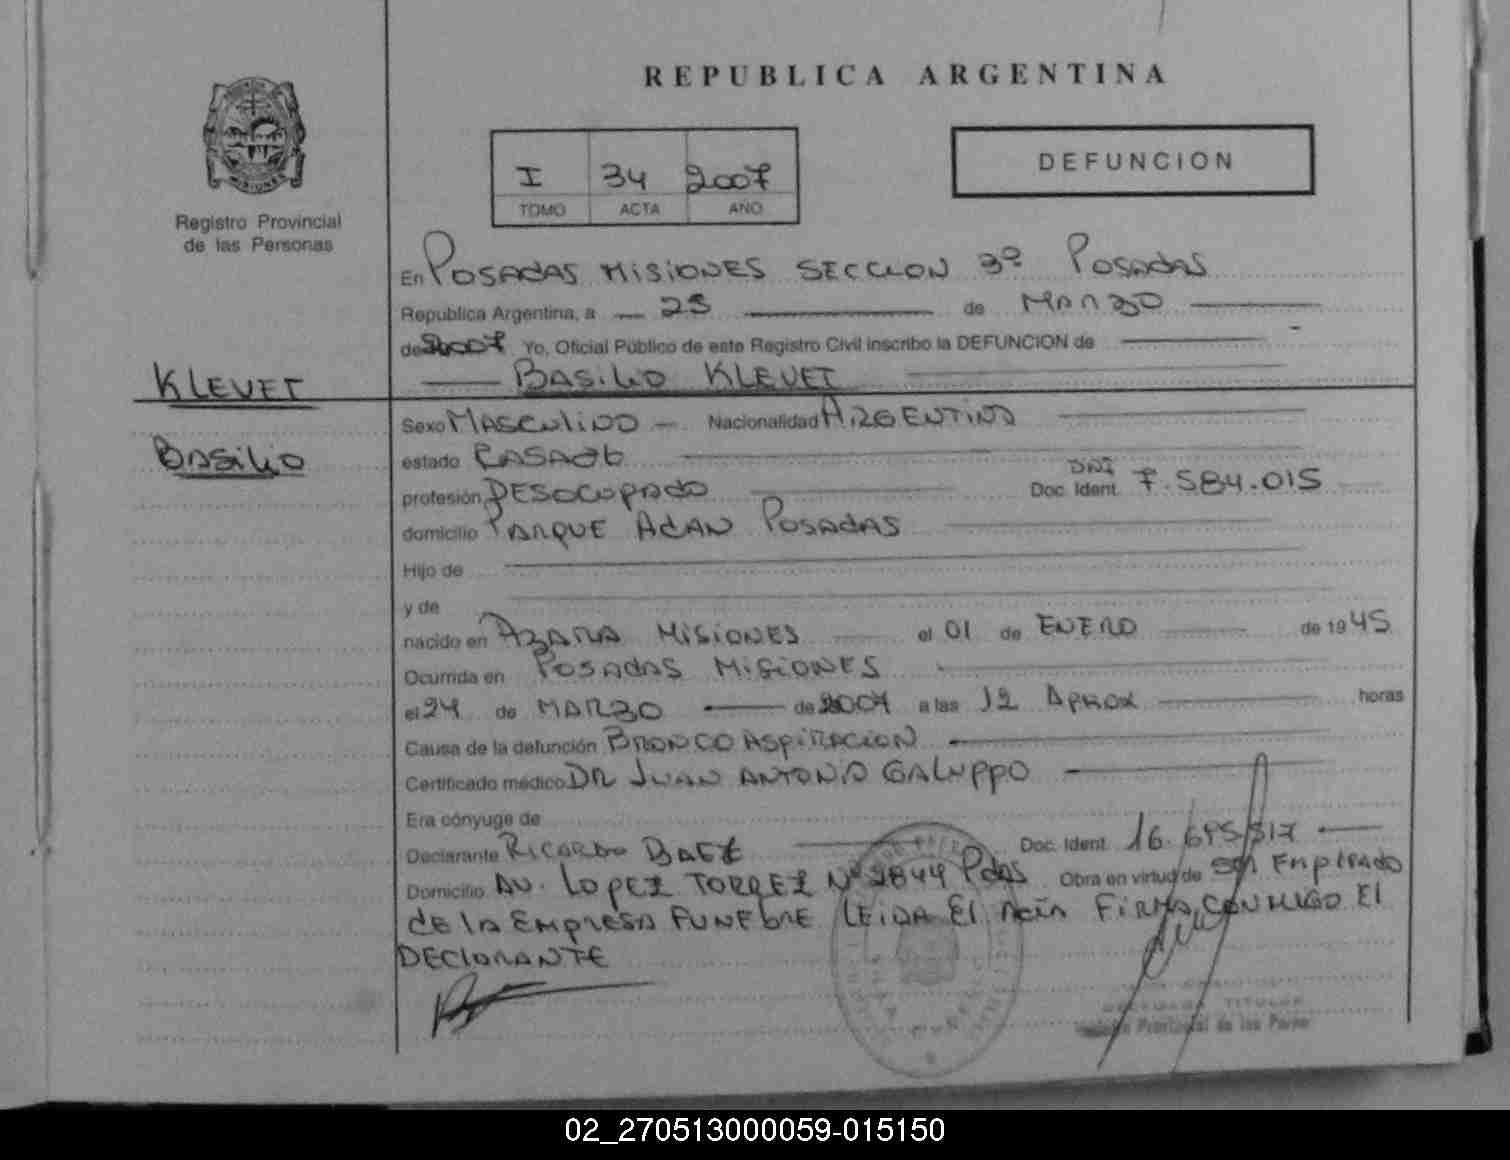 REPUBLICA ARGENTINA
I 34 2007
TOMO ACTA AÑO
DEFUNCION
MISIONES
Registro Provincial
de las Personas
En POSADAS MISIONES SECCION 3º POSADAS
Republica Argentina, a 25 de MARZO
de 2007 Yo, Oficial Público de este Registro Civil inscribo la DEFUNCION de
BASILIO KLEVET
KLEVET
BASILIO
Sexo MASCULINO Nacionalidad ARGENTINO
estado CASADO
profesión DESOCUPADO DNI Doc. Ident. 7.584.015
domicilio PARQUE ADAN POSADAS
Hijo de
y de
nacido en AZARA MISIONES el 01 de ENERO de 1945
Ocurrida en POSADAS MISIONES
el 24 de MARZO de 2007 a las 12 APROX horas
Causa de la defunción BRONCOASPIRACION
Certificado médico DR JUAN ANTONIO GALUPPO
Era cónyuge de
Declarante RICARDO BAEZ Doc. Ident. 16.695.517
Domicilio AV. LOPEZ TORREZ Nº 2844 Pdas Obra en virtud de SER EMPLEADO
DE LA EMPRESA FUNEBRE LEIDA El Acta FIRMA CONMIGO El
DECLORANTE
TITULAR
Provincial de las Perso
02_270513000059-015150